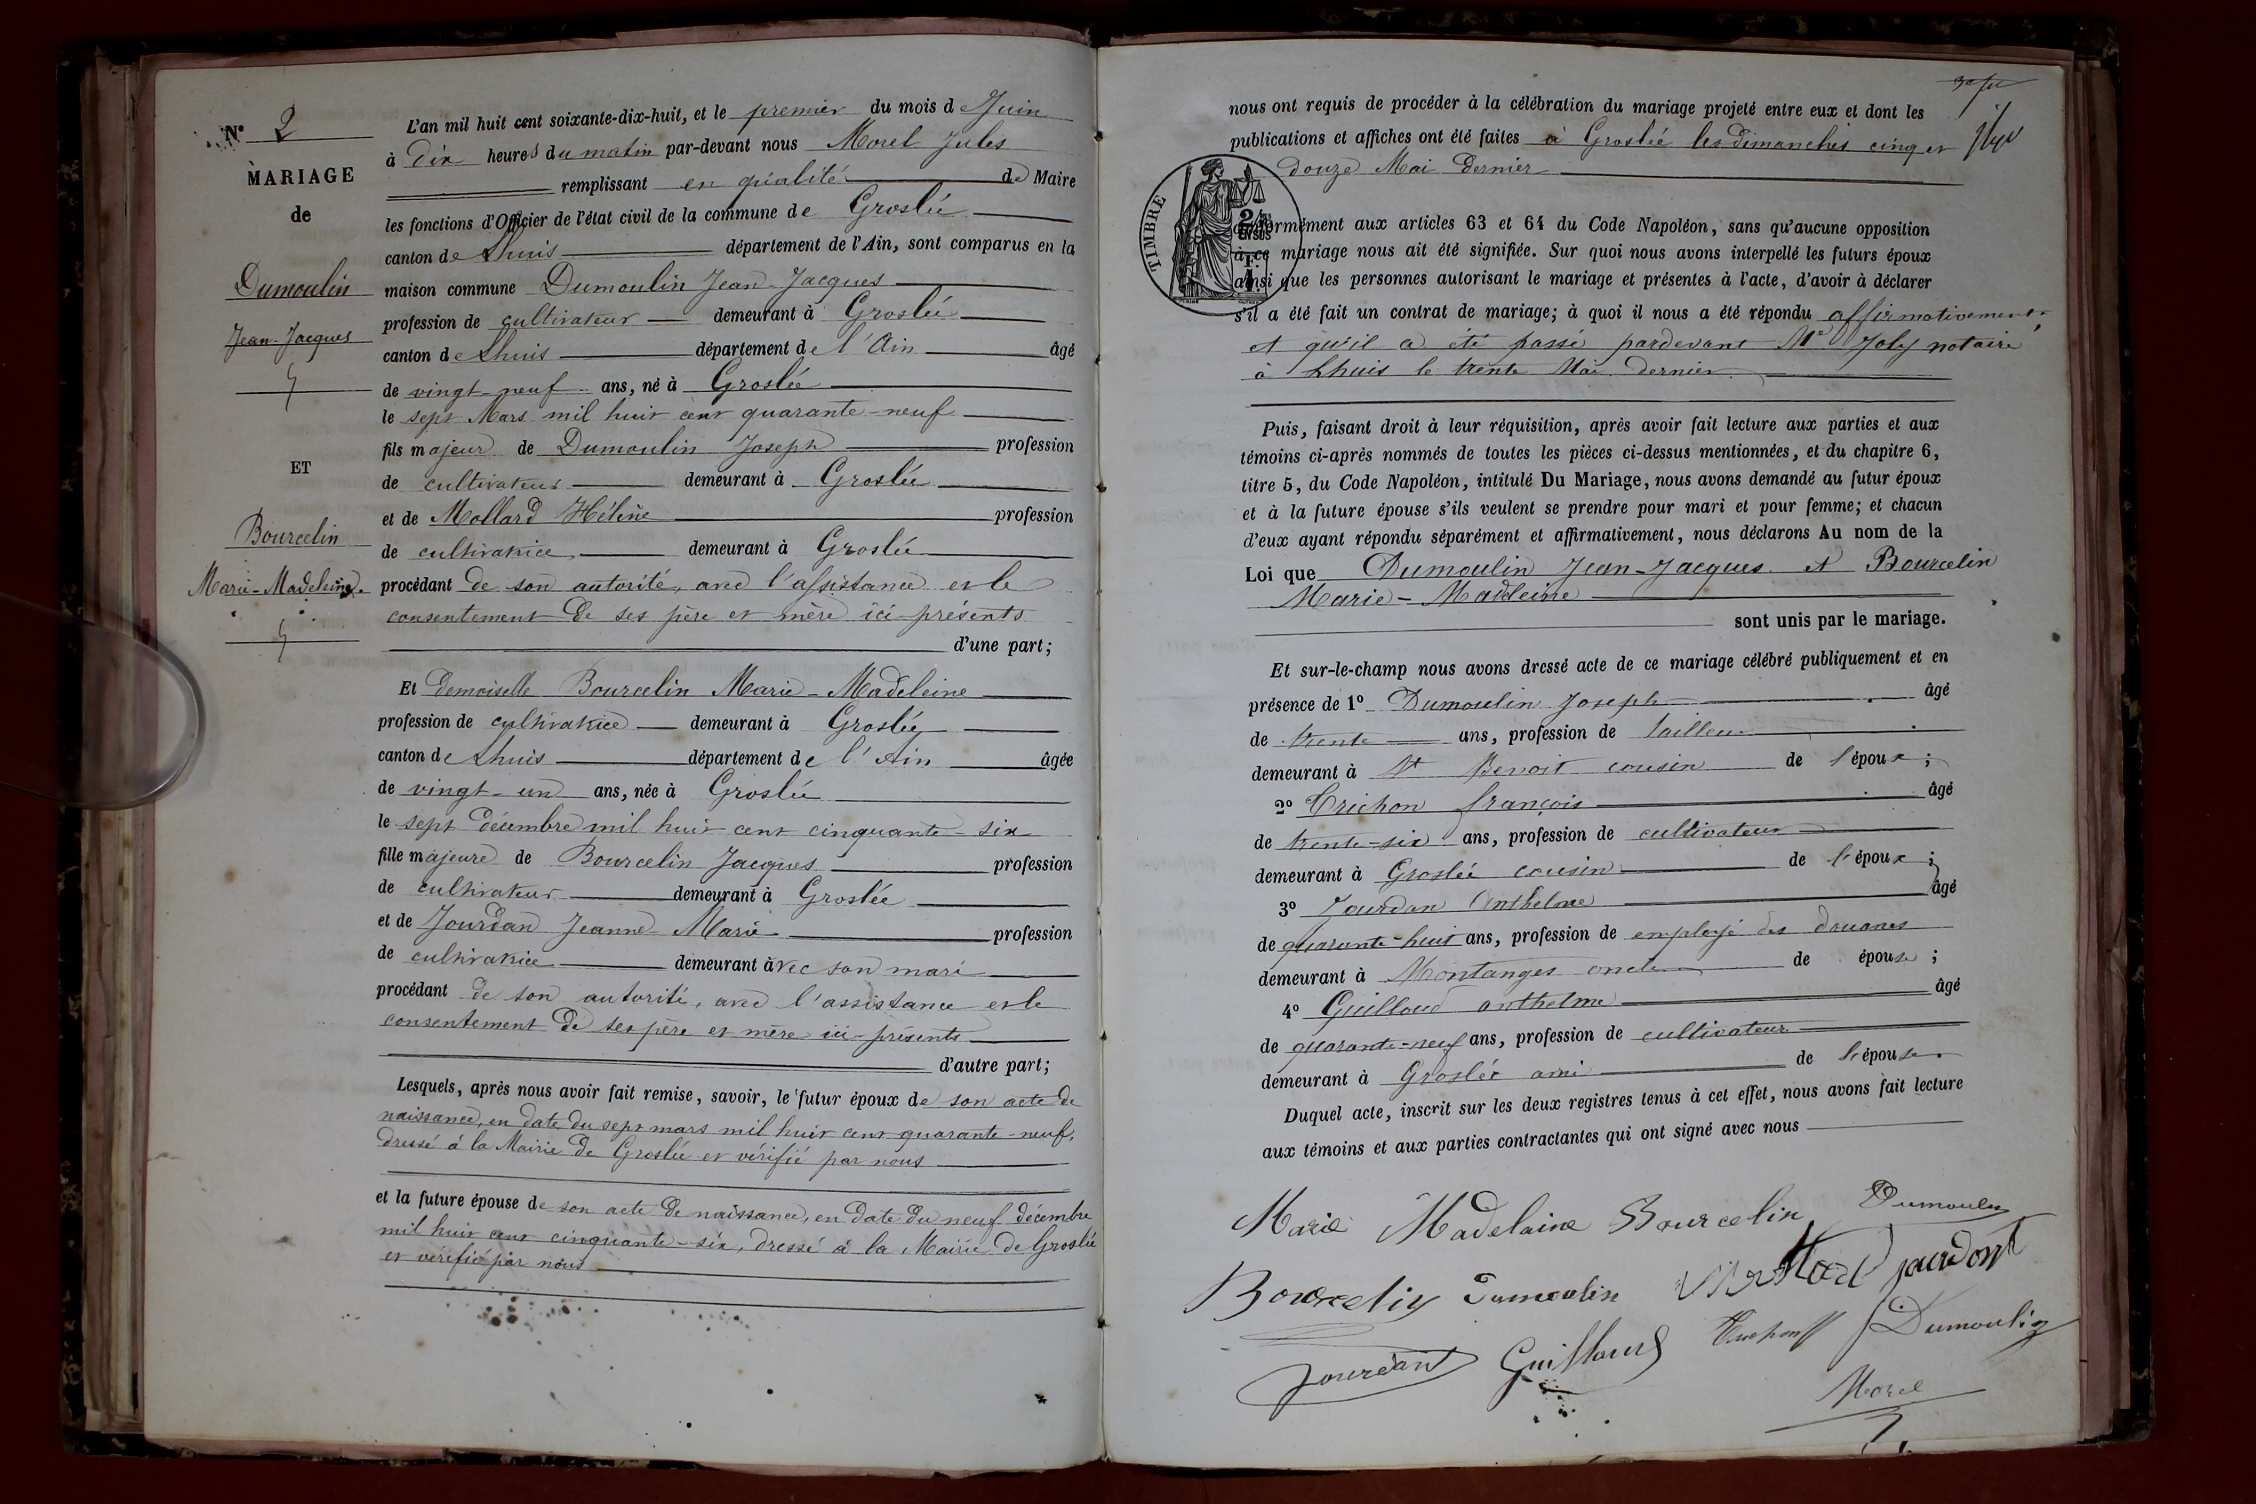 N° 2
MARIAGE
de
Dumoulin
Jean-Jacques
ET
Bourcelin
Marie-Madeleine
L'an mil huit cent soixante-dix-huit, et le premier du mois de Juin
à dix heures du matin par-devant nous Morel Jules
remplissant en qualité de Maire
les fonctions d'Officier de l'état civil de la commune de Groslée
canton de Lhuis département de l'Ain, sont comparus en la
maison commune Dumoulin Jean-Jacques
profession de cultivateur demeurant à Groslée
canton de Lhuis département de l'Ain âgé
de vingt-neuf ans, né à Groslée
le sept Mars mil huit cent quarante-neuf
fils majeur de Dumoulin Joseph profession
de cultivateur demeurant à Groslée
et de Mollard Hélène profession
de cultivatrice demeurant à Groslée
procédant de son autorité, avec l'assistance et le
consentement de ses père et mère ici présents
d'une part;
Et Demoiselle Bourcelin Marie-Madeleine
profession de cultivatrice demeurant à Groslée
canton de Lhuis département de l'Ain âgée
de vingt-un ans, née à Groslée
le sept décembre mil huit cent cinquante-six
fille majeure de Bourcelin Jacques profession
de cultivateur demeurant à Groslée
et de Jourdan Jeanne-Marie profession
de cultivatrice demeurant avec son mari
procédant de son autorité, avec l'assistance et le
consentement de ses père et mère ici-présents
d'autre part;
Lesquels, après nous avoir fait remise, savoir, le futur époux de son acte de
naissance, en date du sept mars mil huit cent quarante-neuf,
dressé à la Mairie de Groslée et vérifié par nous
et la future épouse de son acte de naissance, en date du neuf décembre
mil huit cent cinquante-six, dressé à la Mairie de Groslée
et vérifié par nous
nous ont requis de procéder à la célébration du mariage projeté entre eux et dont les
publications et affiches ont été faites à Groslée les dimanches cinq et
douze Mai dernier
TIMBRE
conformément aux articles 63 et 64 du Code Napoléon, sans qu'aucune opposition
à ce mariage nous ait été signifiée. Sur quoi nous avons interpellé les futurs époux
ainsi que les personnes autorisant le mariage et présentes à l'acte, d'avoir à déclarer
s'il a été fait un contrat de mariage; à quoi il nous a été répondu affirmativement
et qu'il a été passé pardevant Me Joly notaire
à Lhuis le trente Mai dernier
Puis, faisant droit à leur réquisition, après avoir fait lecture aux parties et aux
témoins ci-après nommés de toutes les pièces ci-dessus mentionnées, et du chapitre 6,
titre 5, du Code Napoléon, intitulé Du Mariage, nous avons demandé au futur époux
et à la future épouse s'ils veulent se prendre pour mari et pour femme; et chacun
d'eux ayant répondu séparément et affirmativement, nous déclarons Au nom de la
Loi que Dumoulin Jean-Jacques et Bourcelin
Marie-Madeleine
sont unis par le mariage.
Et sur-le-champ nous avons dressé acte de ce mariage célébré publiquement et en
présence de 1° Dumoulin Joseph âgé
de trente ans, profession de tailleur
demeurant à St Benoit cousin de l'époux;
2° Trichon françois âgé
de trente-six ans, profession de cultivateur
demeurant à Groslée cousin de l'époux;
3° Jourdan Anthelme âgé
de quarante-huit ans, profession de employé des douanes
demeurant à Montanges oncle de épouse;
4° Guilloud anthelme âgé
de quarante-neuf ans, profession de cultivateur
demeurant à Groslée ami de l'épouse.
Duquel acte, inscrit sur les deux registres tenus à cet effet, nous avons fait lecture
aux témoins et aux parties contractantes qui ont signé avec nous
Marie Madelaine Bourcelin Dumoulin
Bourcelin Dumoulin jourdant
Jourdant Guilloud Dumoulin
Morel